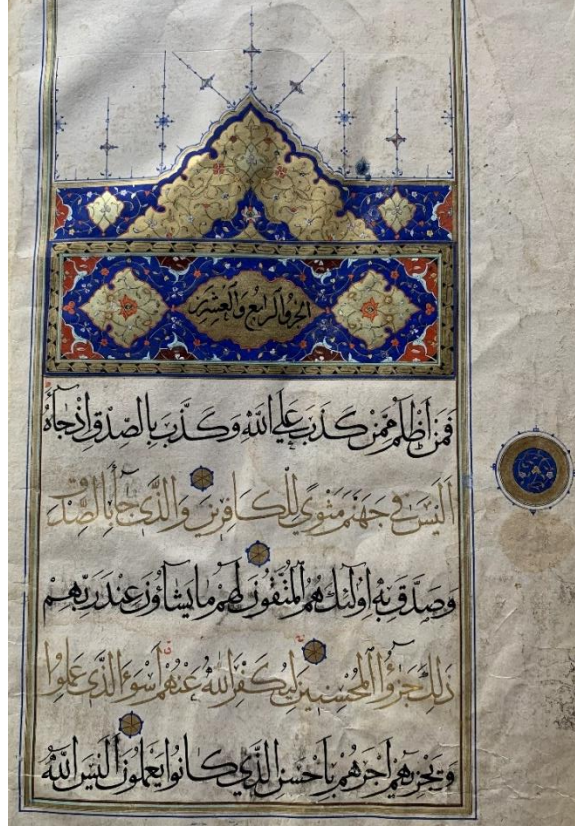 الجزو الرابع والعشرين
فَمَنْ أَظْلَمُ مِمَّنْ كَذَبَ عَلَى اللَّهِ وَكَذَّبَ بِالصِّدْقِ إِذْ جَاءَهُ
أَلَيْسَ فِي جَهَنَّمَ مَثْوًى لِلْكَافِرِينَ وَالَّذِي جَاءَ بِالصِّدْقِ
وَصَدَّقَ بِهِ أُولَئِكَ هُمُ الْمُتَّقُونَ لَهُمْ مَا يَشَاؤُنَ عِنْدَ رَبِّهِمْ
ذَلِكَ جَزَؤُا الْمُحْسِنِينَ لِيُكَفِّرَ اللَّهُ عَنْهُمْ أَسْوَءَ الَّذِي عَمِلُوا
وَيَجْزِيَهُمْ أَجْرَهُمْ بِأَحْسَنِ الَّذِي كَانُوا يَعْمَلُونَ أَلَيْسَ اللَّهُ